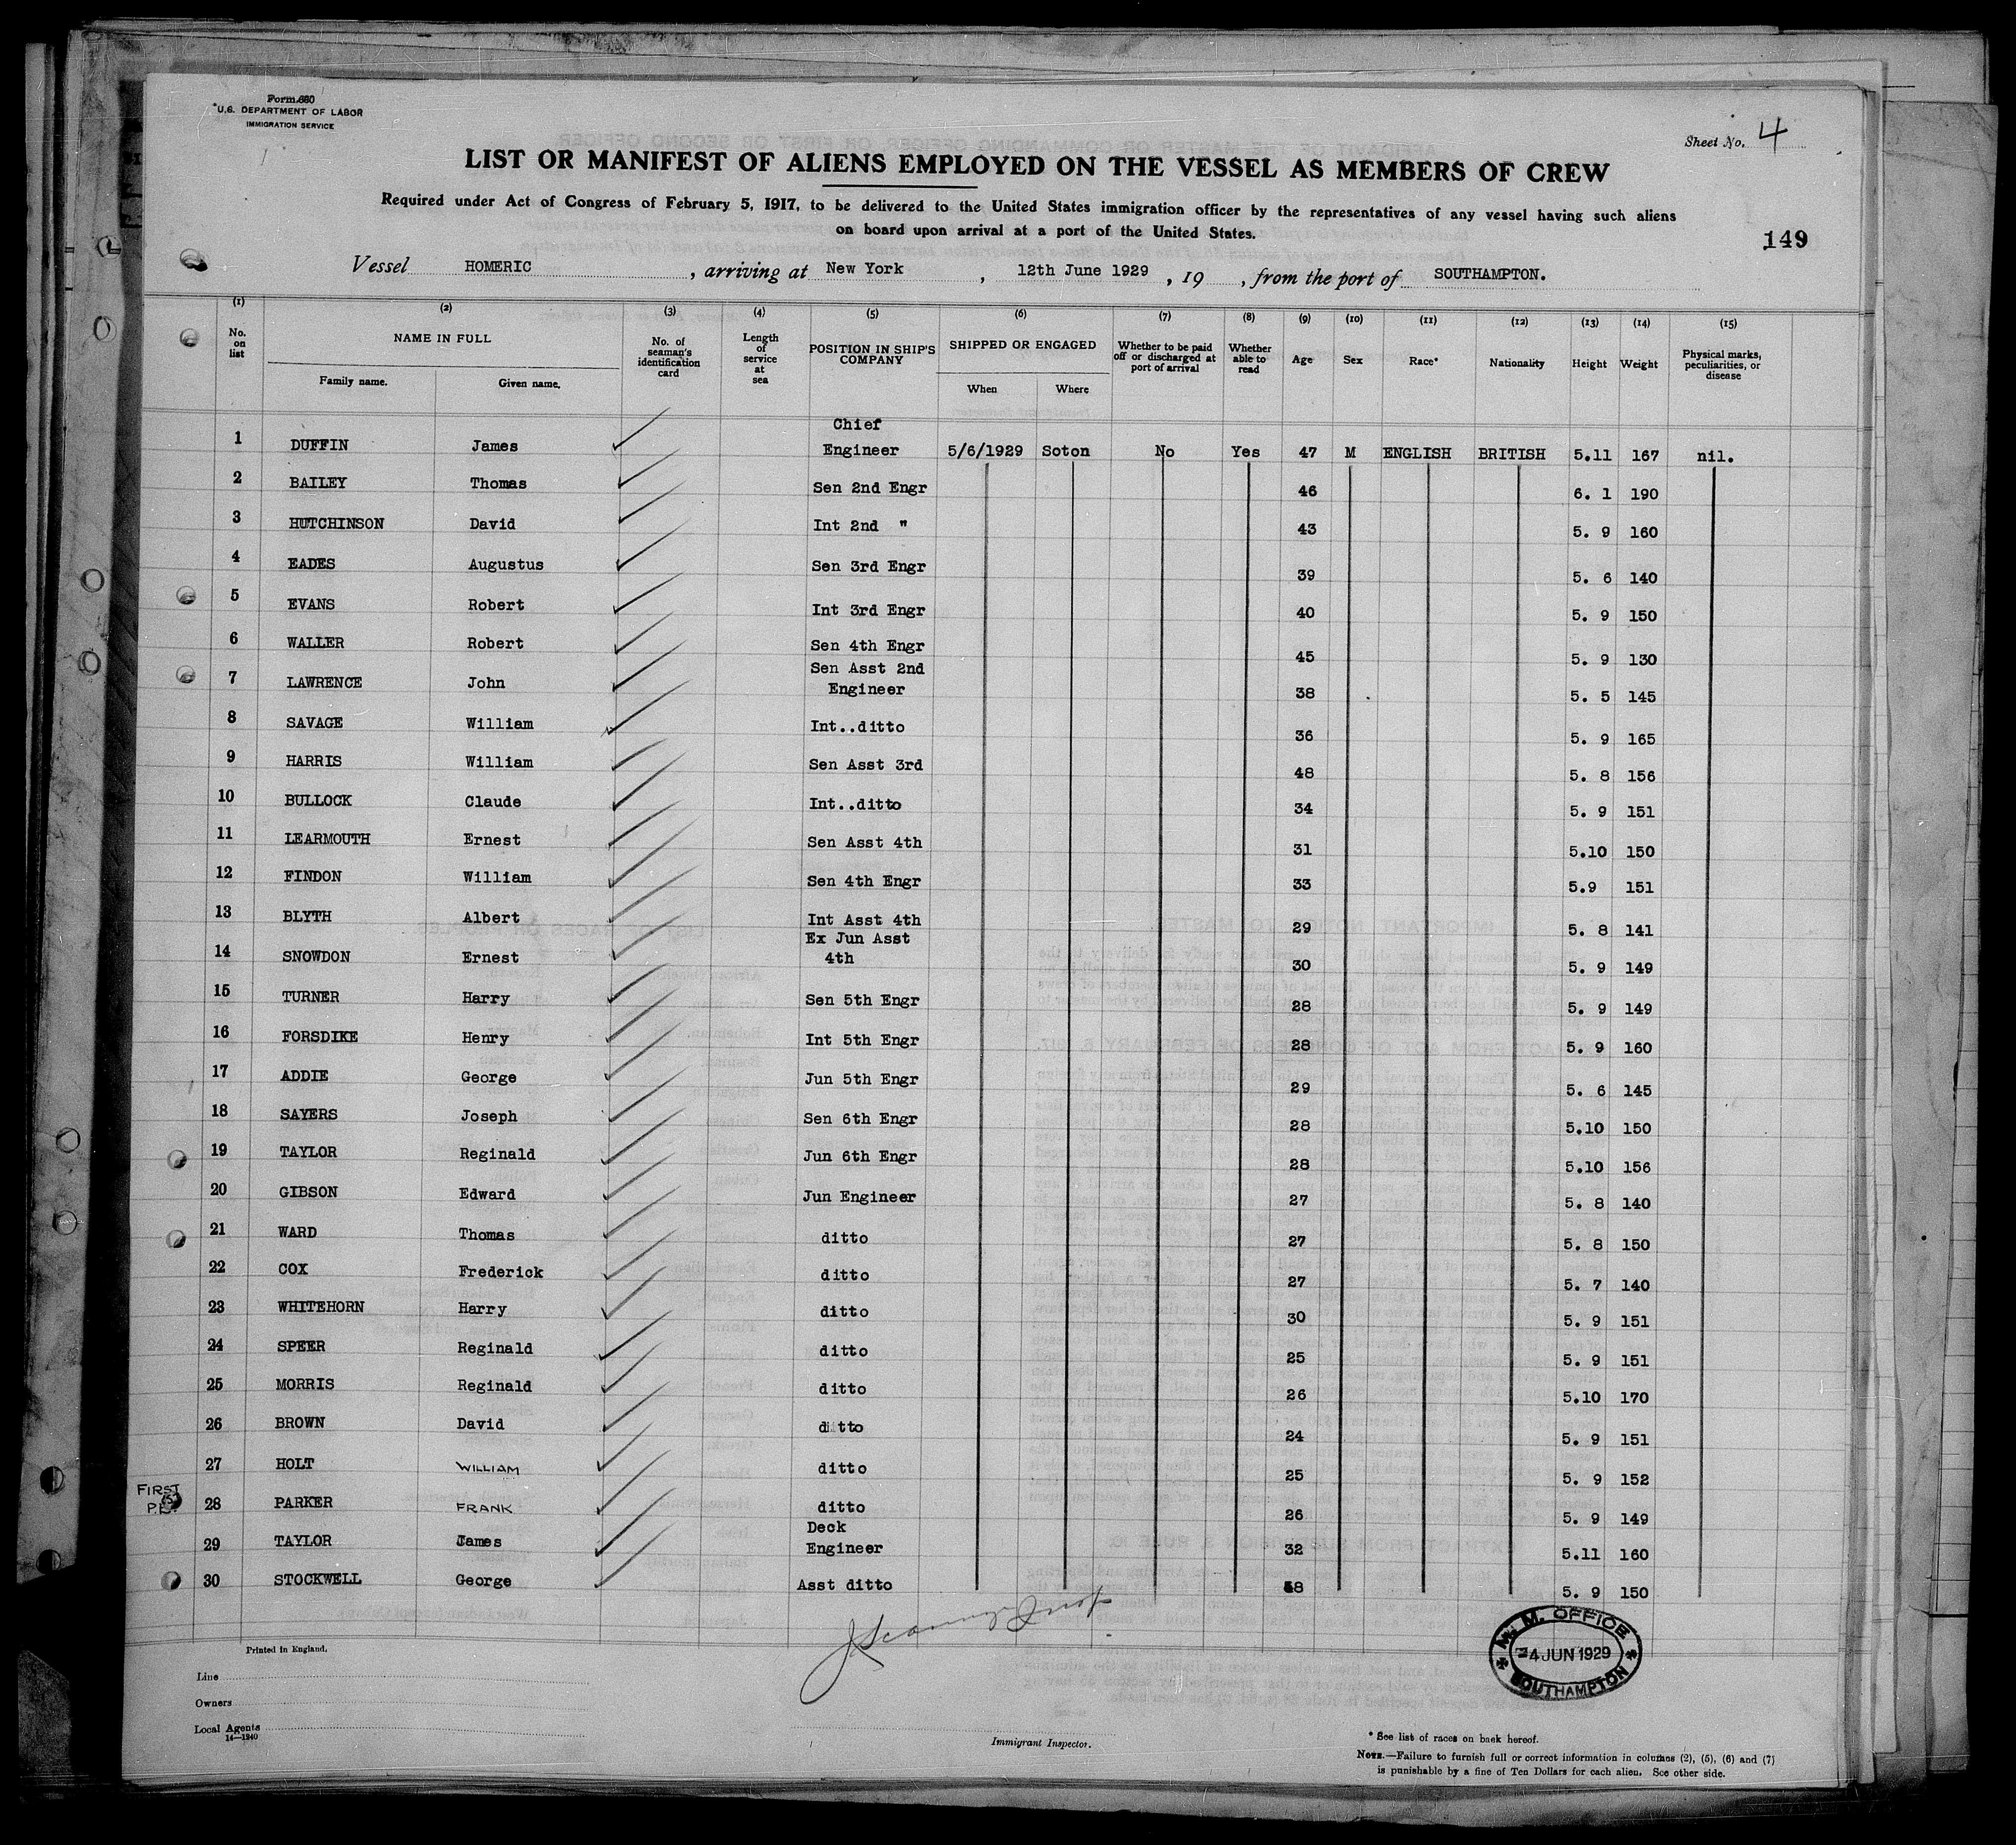 Form 680
U.S. DEPARTMENT OF LABOR
IMMIGRATION SERVICE
Sheet No. 4
LIST OR MANIFEST OF ALIENS EMPLOYED ON THE VESSEL AS MEMBERS OF CREW
Required under Act of Congress of February 5, 1917, to be delivered to the United States immigration officer by the representatives of any vessel having such aliens
on board upon arrival at a port of the United States.
149
Vessel HOMERIC , arriving at New York , 12th June 1929 , 19 , from the port of SOUTHAMPTON.
(1) (2) (3) (4) (5) (6) (7) (8) (9) (10) (11) (12) (13) (14) (15)
No. on list NAME IN FULL Family name. Given name. No. of seaman's identification card Length of service at sea POSITION IN SHIP'S COMPANY SHIPPED OR ENGAGED When Where Whether to be paid off or discharged at port of arrival Whether able to read Age Sex Race* Nationality Height Weight Physical marks, peculiarities, or disease
1 DUFFIN James Chief Engineer 5/6/1929 Soton No Yes 47 M ENGLISH BRITISH 5.11 167 nil.
2 BAILEY Thomas Sen 2nd Engr 46 6. 1 190
3 HUTCHINSON David Int 2nd " 43 5. 9 160
4 EADES Augustus Sen 3rd Engr 39 5. 6 140
5 EVANS Robert Int 3rd Engr 40 5. 9 150
6 WALLER Robert Sen 4th Engr 45 5. 9 130
7 LAWRENCE John Sen Asst 2nd Engineer 38 5. 5 145
8 SAVAGE William Int..ditto 36 5. 9 165
9 HARRIS William Sen Asst 3rd 48 5. 8 156
10 BULLOCK Claude Int..ditto 34 5. 9 151
11 LEARMOUTH Ernest Sen Asst 4th 31 5.10 150
12 FINDON William Sen 4th Engr 33 5.9 151
13 BLYTH Albert Int Asst 4th 29 5. 8 141
14 SNOWDON Ernest Ex Jun Asst 4th 30 5. 9 149
15 TURNER Harry Sen 5th Engr 28 5. 9 149
16 FORSDIKE Henry Int 5th Engr 28 5. 9 160
17 ADDIE George Jun 5th Engr 29 5. 6 145
18 SAYERS Joseph Sen 6th Engr 28 5.10 150
19 TAYLOR Reginald Jun 6th Engr 28 5.10 156
20 GIBSON Edward Jun Engineer 27 5. 8 140
21 WARD Thomas ditto 27 5. 8 150
22 COX Frederick ditto 27 5. 7 140
23 WHITEHORN Harry ditto 30 5. 9 151
24 SPEER Reginald ditto 25 5. 9 151
25 MORRIS Reginald ditto 26 5.10 170
26 BROWN David ditto 24 5. 9 151
27 HOLT WILLIAM ditto 25 5. 9 152
FIRST
28 PARKER FRANK ditto 26 5. 9 149
29 TAYLOR James Deck Engineer 32 5.11 160
30 STOCKWELL George Asst ditto 5. 9 150
M. M. OFFICE
4 JUN 1929
SOUTHAMPTON
Printed in England.
Line
Owners
Local Agents
14—1240
Immigrant Inspector.
* See list of races on back hereof.
NOTE.—Failure to furnish full or correct information in columns (2), (5), (6) and (7)
is punishable by a fine of Ten Dollars for each alien. See other side.